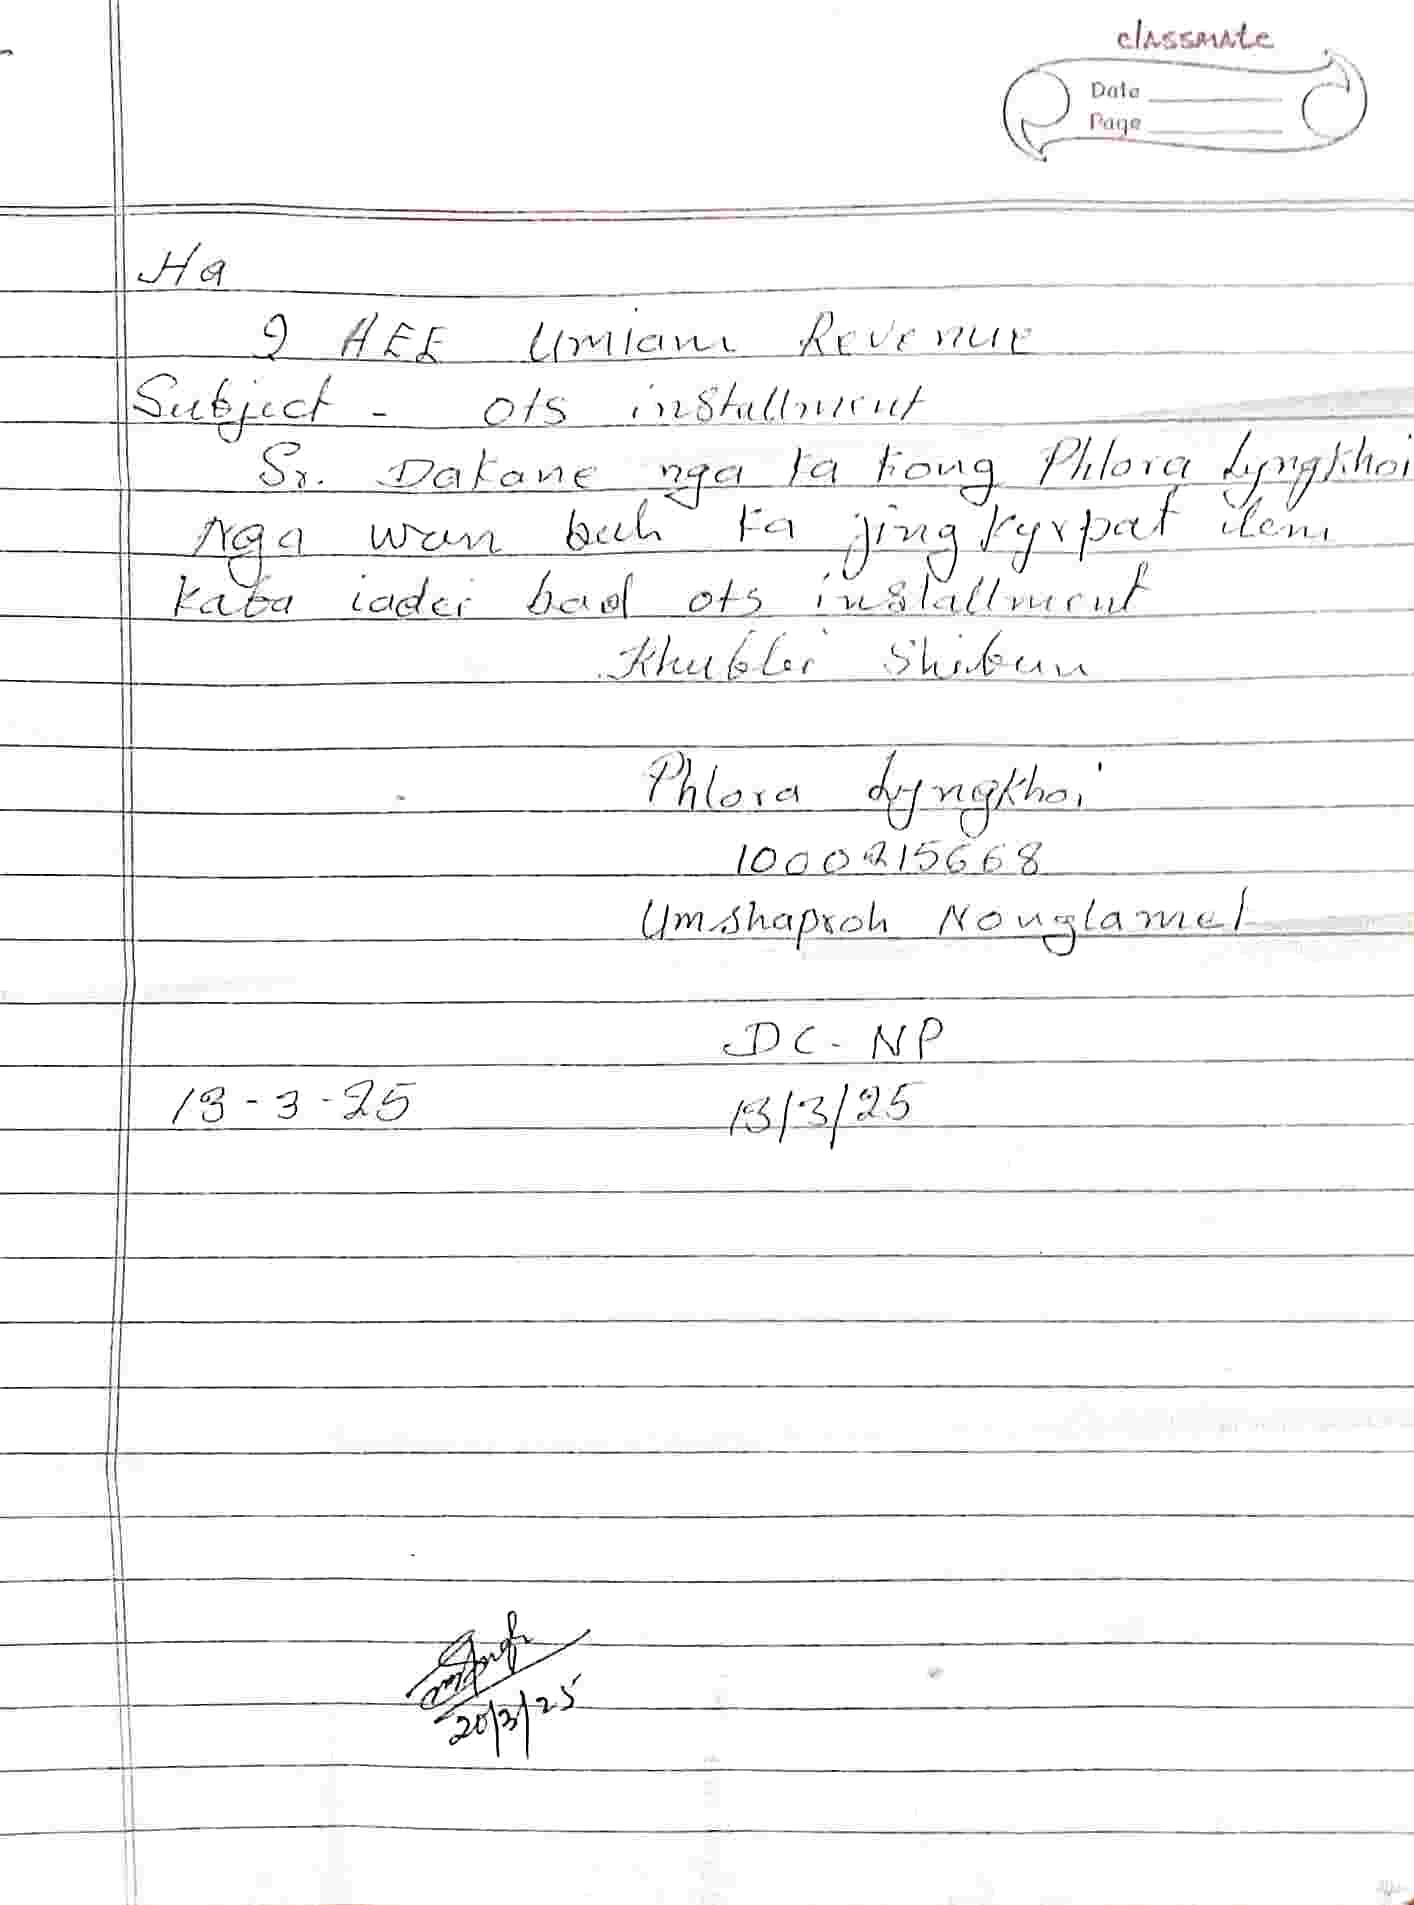 classmate
Date
Page
Ha
I AEE Umiam Revenue
Subject - ots installment
Sr. Dakane nga ka kong Phlora Lyngkhoi
nga wan buh ka jingkyrpat ilem
kaba iadei bad ots installment
Khublei Shibun
Phlora Lyngkhoi
1000215668
Umshaproh Nonglamet
DC - NP
13-3-25 13/3/25
20/3/25